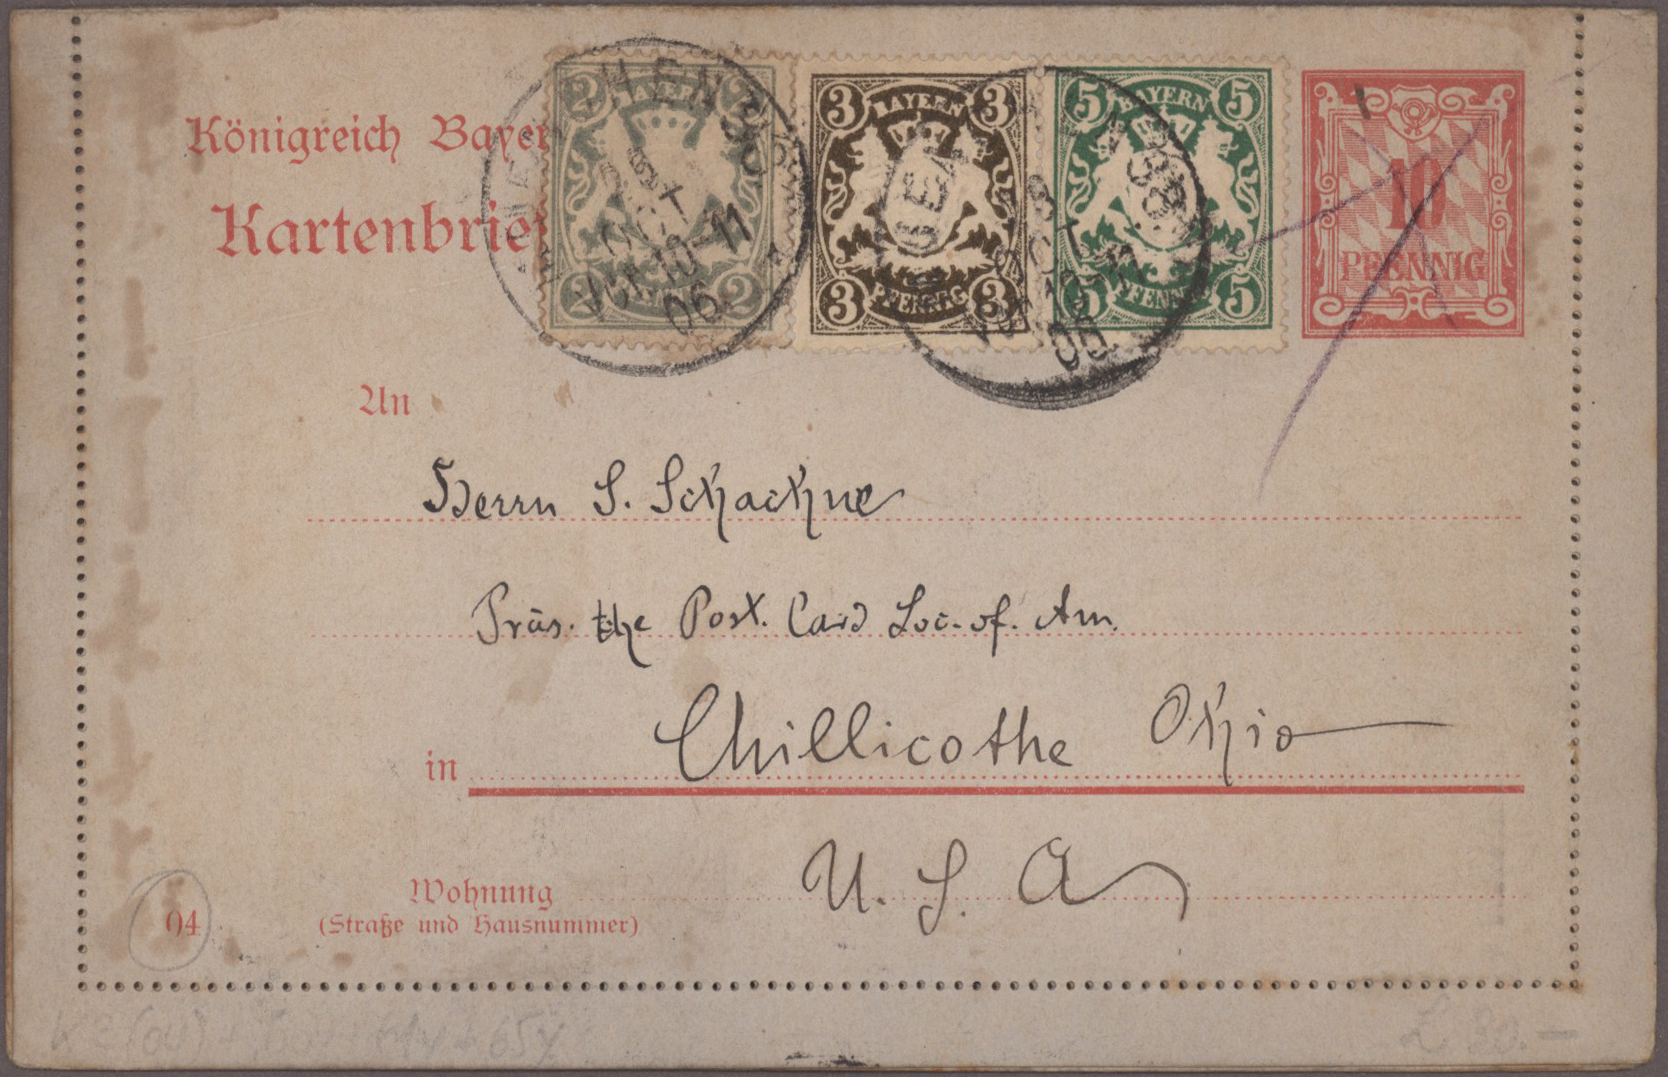 Königreich Bayer
Kartenbrie
2 BAYERN 2
2 2
3 BAYERN 3
3 PFENNIG 3
5 BAYERN 5
5 PFENNIG 5
10
PFENNIG
OKT
VOR 10-11
06
VOR
06
An
Herrn S. Schachne
Präs. the Post. Card Soc. of. Am.
in Chillicothe Ohio
U. S. A
Wohnung
(Straße und Hausnummer)
04
£ 30.-